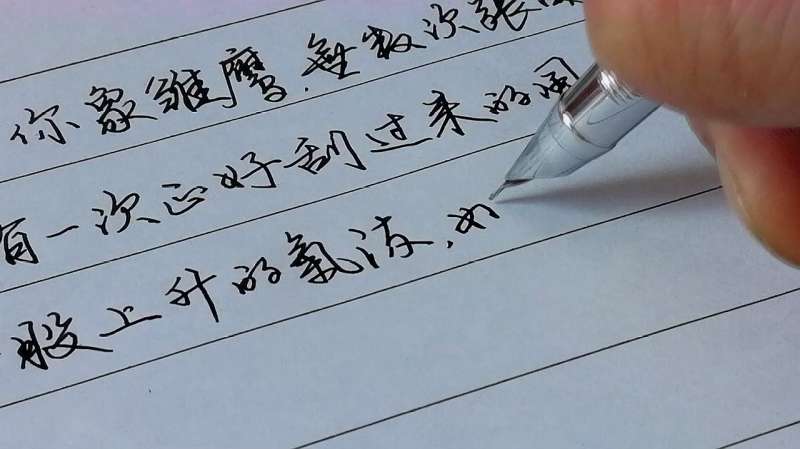 你象雏鹰,無数次張
有一次正好刮过来的風
股上升的氣流,如